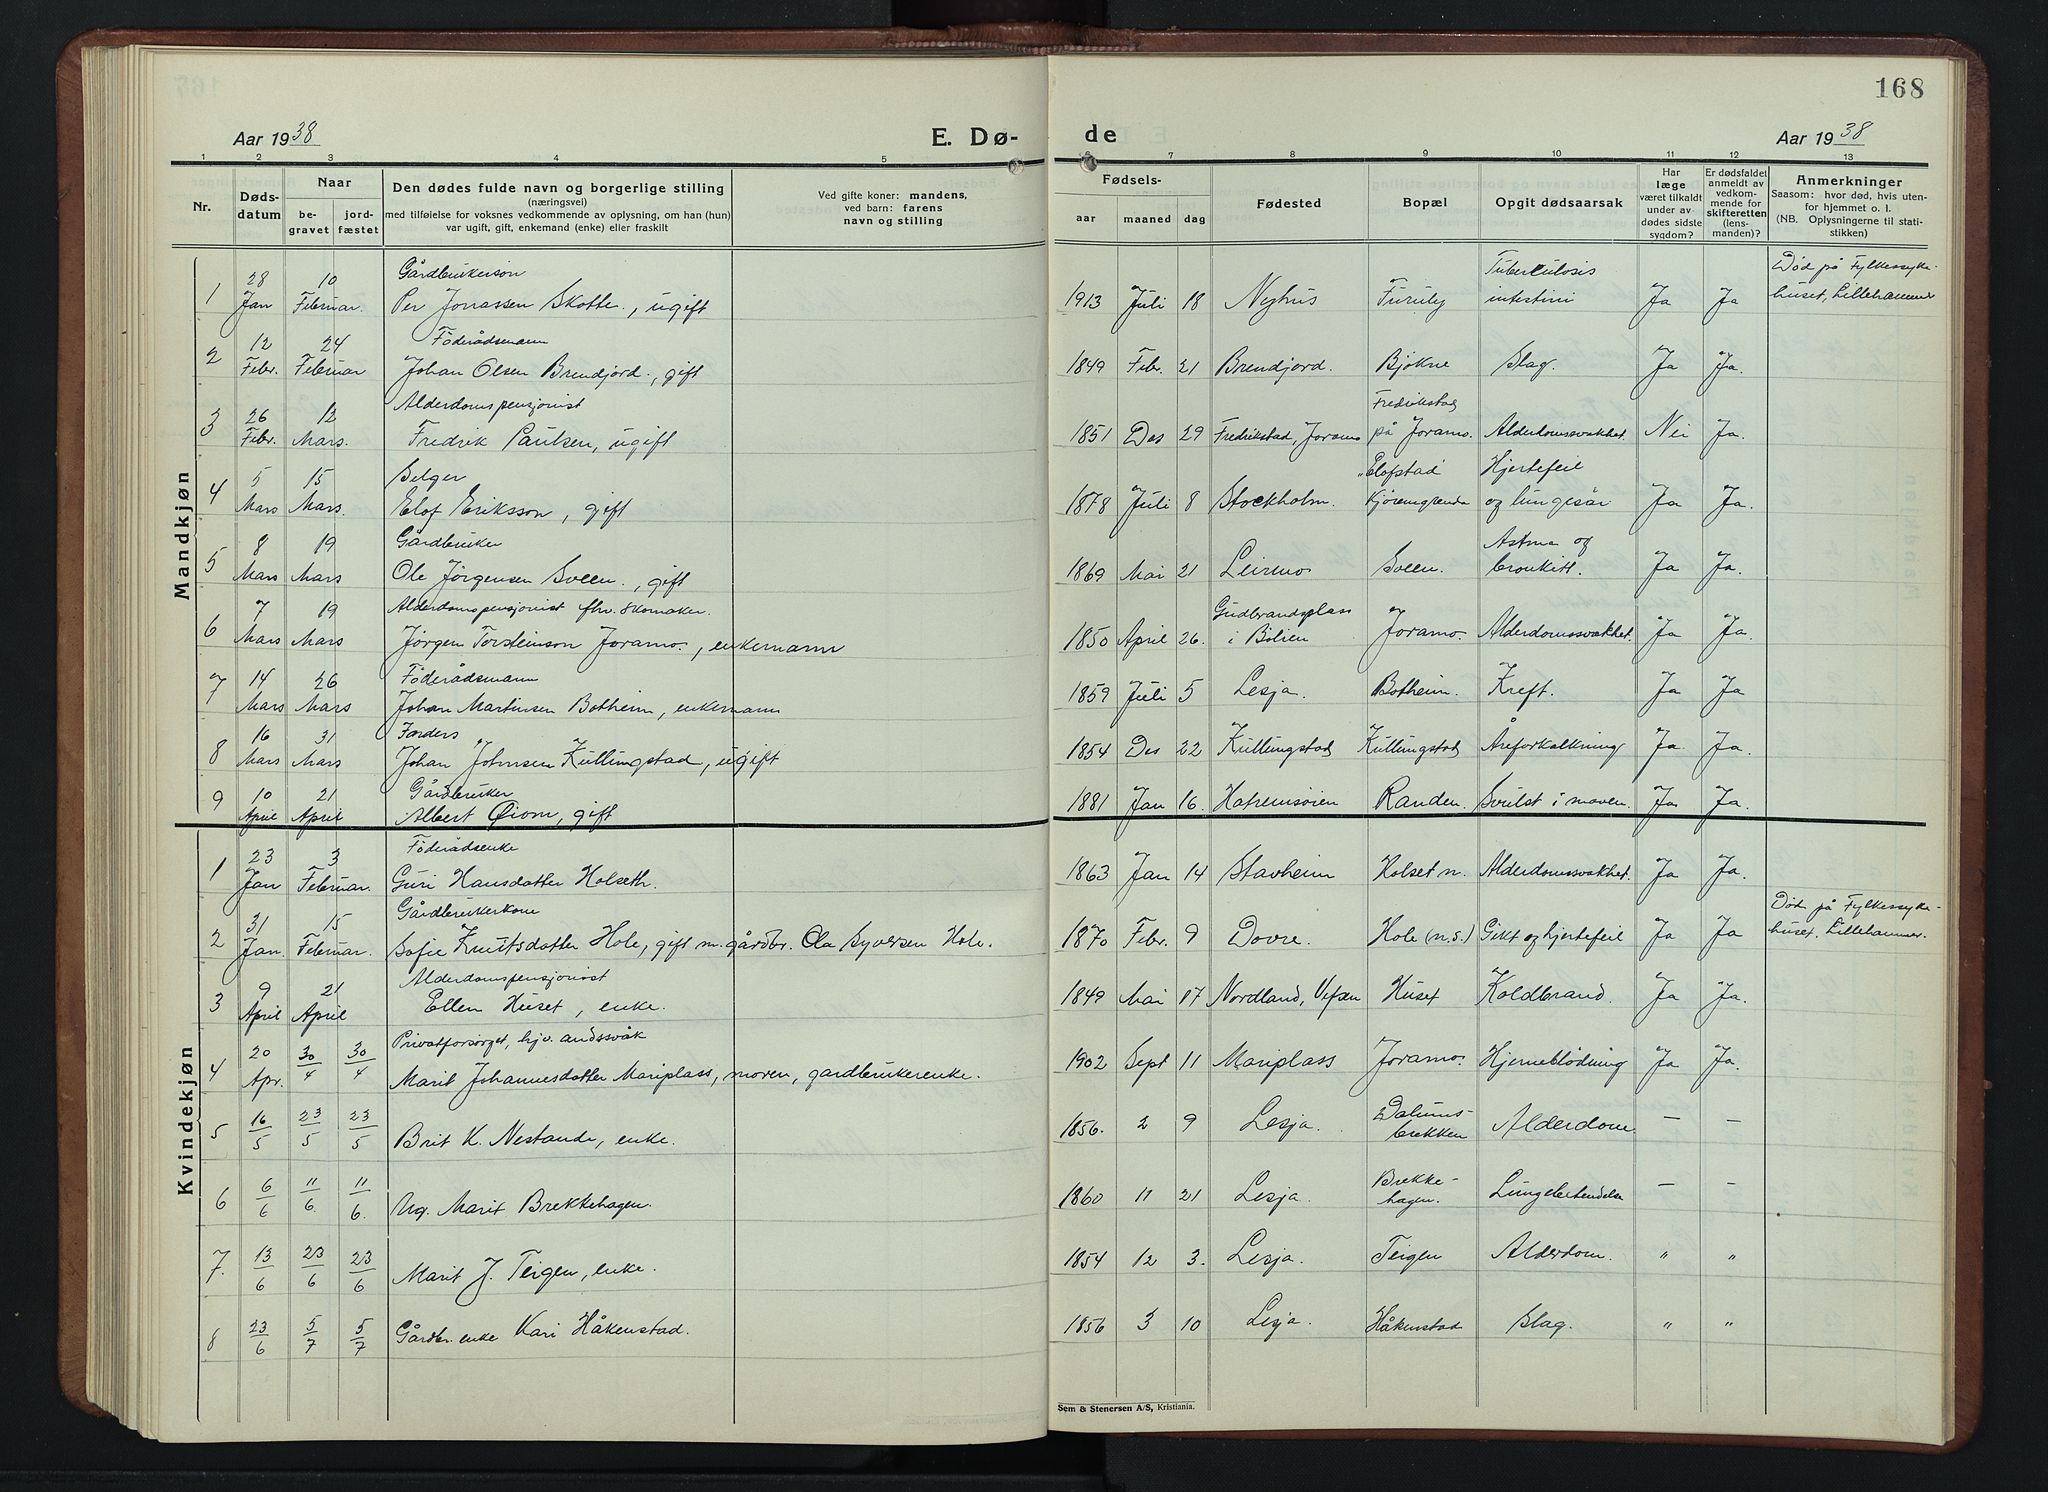 168
Aar 1938
E. Dø-
de
Aar 1938
1 2 3 4 5 6 7 8 9 10 11 12 13
Nr.
Døds-
datum
Naar
be-
gravet
jord-
fæstet
Den dødes fulde navn og borgerlige stilling
(næringsvei)
med tilføielse for voksnes vedkommende av oplysning, om han (hun)
var ugift, gift, enkemand (enke) eller fraskilt
Ved gifte koner: mandens,
ved barn: farens
navn og stilling
Fødsels-
aar maaned dag
Fødested
Bopæl
Opgit dødsaarsak
Har
læge
været tilkaldt
under av
dødes sidste
sygdom?
Er dødsfaldet
anmeldt av
vedkom-
mende for
skifteretten
(lens-
manden)?
Anmerkninger
Saasom: hvor død, hvis uten-
for hjemmet o. l.
(NB. Oplysningerne til stati-
stikken)
Mandkjøn
28 10 Gårdbrukersøn Tuberculosis Død på Fylkessyke-
1 Jan Februar. Per Jonassen Skotte, ugift 1913 Juli 18 Nyhus Furuly intestini Ja Ja huset, Lillehammer
12 24 Föderådsmann
2 Febr. Februar Johan Olsen Brendjord, gift 1849 Febr. 21 Brendjord. Bjøkne Slag. Ja Ja.
26 12 Alderdomspensjonist Fredrikstad
3 Febr. Mars. Fredrik Paulsen, ugift 1851 Des 29 Fredrikstad, Joramo på Joramo. Alderdomssvakhet. Nei Ja.
5 15 Selger "Elofstad" Hjertefeil
4 Mars Mars. Elof Eriksson, gift 1878 Juli 8 Stockholm. Kjøremgrenda og lungesår Ja Ja.
8 19 Gårdbruker Astma og
5 Mars Mars Ole Jørgensen Sveen., gift 1869 Mai 21 Leirmo Sveen. bronkitt. Ja Ja.
7 19 Alderdomspensjonist fhv. skomaker. Gudbrandsplass
6 Mars Mars Jørgen Torsteinson Joramo., enkemann 1850 April 26. i Bølien Joramo. Alderdomssvakhet. Ja Ja.
14 26 Föderådsmann
7 Mars Mars Johan Martinsen Botheim, enkemann 1859 Juli 5 Lesja. Botheim. Kreft. Ja Ja
16 31 Forders
8 Mars Mars Johan Johnsen Kullingstad, ugift 1854 Des 22 Kullingstad Kullingstad Åreforkalkning Ja Ja.
10 21 Gårdbruker
9 April April Albert Øiom, gift 1881 Jan 16. Hatremsøien Randen. Svulst i maven. Ja Ja.
Kvindekjøn
23 3 Föderådsenke
1 Jan Februar. Guri Hansdatter Holseth. 1863 Jan 14 Stavheim Holset n. Alderdomssvakhet. Ja Ja.
31 15 Gårdbrukerkone Død på Fylkessyke-
2 Jan. Februar. Sofie Knutsdatter Hole, gift m. gårdbr. Ola Syversen Hole. 1870 Febr. 9 Dovre. Hole (n.s.) Gikt og hjertefeil Ja Ja huset. Lillehammer.
9 21 Alderdomspensjonist
3 April April Ellen Huset, enke. 1849 Mai 17 Nordland, Vefsen Huset Koldbrand. Ja Ja.
20 30/4 30/4 Privatforsørget, hjv. åndssvåk
4 Apr. Marit Johannesdatter Mariplass, moren, gardbrukerenke. 1902 Sept 11 Mariplass Joramo. Hjerneblødning Ja Ja.
5 16/5 23/5 23/5 Brit K. Nestande, enke. 1856. 2 9 Lesja. Dalums-
brekken Alderdom. — —
6 6/6 11/6. 11/6. Ug. Marit Brekkehagen. 1860 11 21 Lesja. Brekke-
hagen. Lungebetendelse — —
7. 13/6 23/6 23/6 Marit J. Teigen, enke. 1854 12 3. Lesja. Teigen Alderdom. " "
8 23/6 5/7 5/7 Gårdbr. enke Kari Håkenstad. 1856 3 10 Lesja. Håkenstad Slag. " "
Sem & Stenersen A/S, Kristiania.